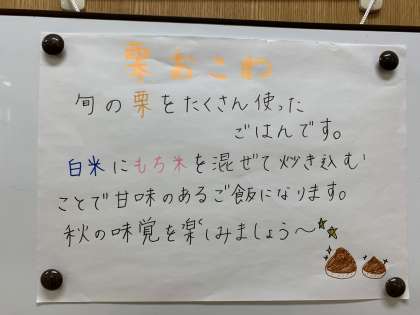 栗おこわ
旬の栗をたくさん使った
ごはんです。
白米にもち米を混ぜて炊き込む
ことで甘味のあるご飯になります。
秋の味覚を楽しみましょう〜